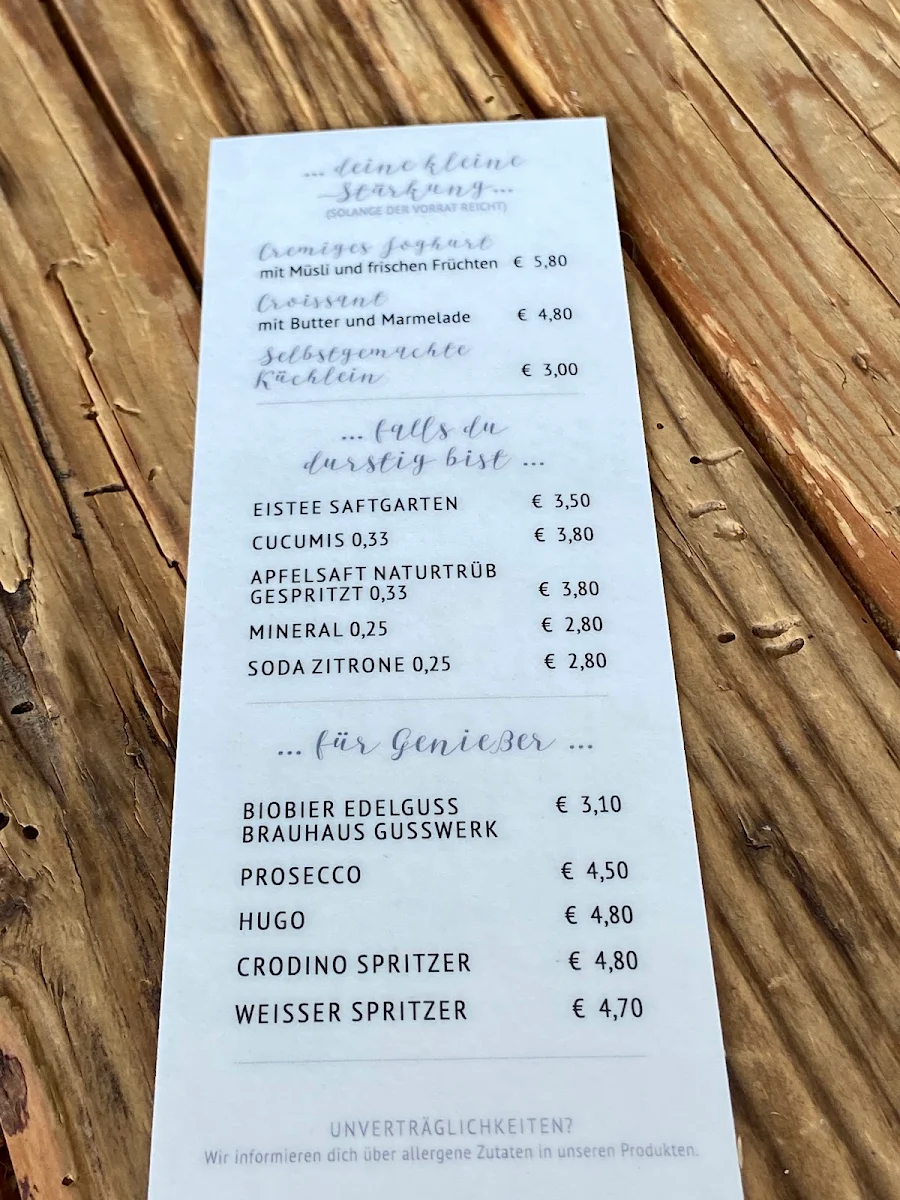 ... deine kleine
Stärkung...
(SOLANGE DER VORRAT REICHT)
Cremiges Joghurt
mit Müsli und frischen Früchten € 5,80
Croissant
mit Butter und Marmelade € 4,80
Selbstgemachte
Küchlein € 3,00
... falls du
durstig bist ...
EISTEE SAFTGARTEN € 3,50
CUCUMIS 0,33 € 3,80
APFELSAFT NATURTRÜB
GESPRITZT 0,33 € 3,80
MINERAL 0,25 € 2,80
SODA ZITRONE 0,25 € 2,80
... für Genießer ...
BIOBIER EDELGUSS € 3,10
BRAUHAUS GUSSWERK
PROSECCO € 4,50
HUGO € 4,80
CRODINO SPRITZER € 4,80
WEISSER SPRITZER € 4,70
UNVERTRÄGLICHKEITEN?
Wir informieren dich über allergene Zutaten in unseren Produkten.